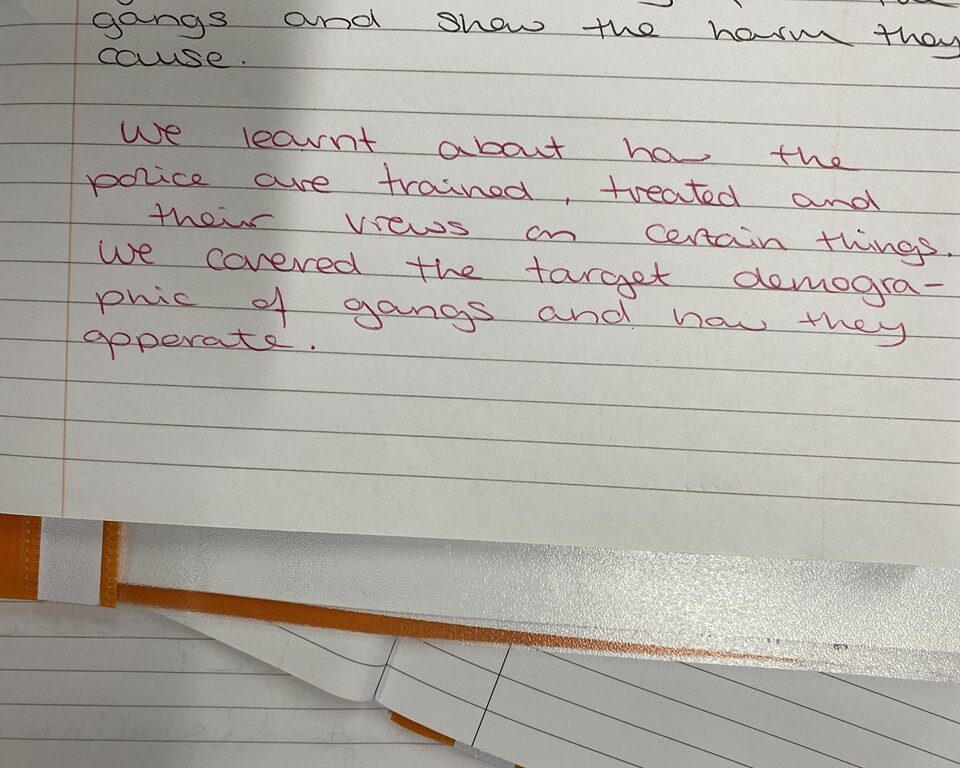 gangs and show the harm they
cause.
We learnt about how the
police are trained, treated and
their views on certain things.
We covered the target demogra-
phic of gangs and how they
opperate.